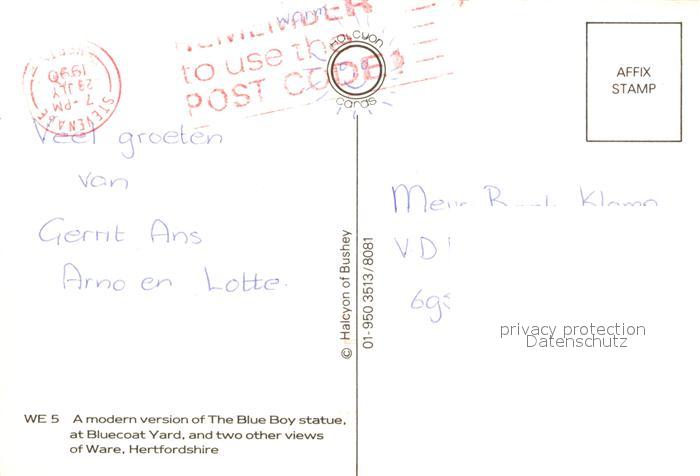 warm
REMEMBER
to use the
POST CODE
Halcyon
cards
STEVENAGE
7 - PM
23 JLY
1990
AFFIX
STAMP
Veel groeten
van
Gerrit Ans
Arno en Lotte.
VD
© Halcyon of Bushey
01-950 3513/8081
privacy protection
Datenschutz
WE 5 A modern version of The Blue Boy statue,
at Bluecoat Yard, and two other views
of Ware, Hertfordshire